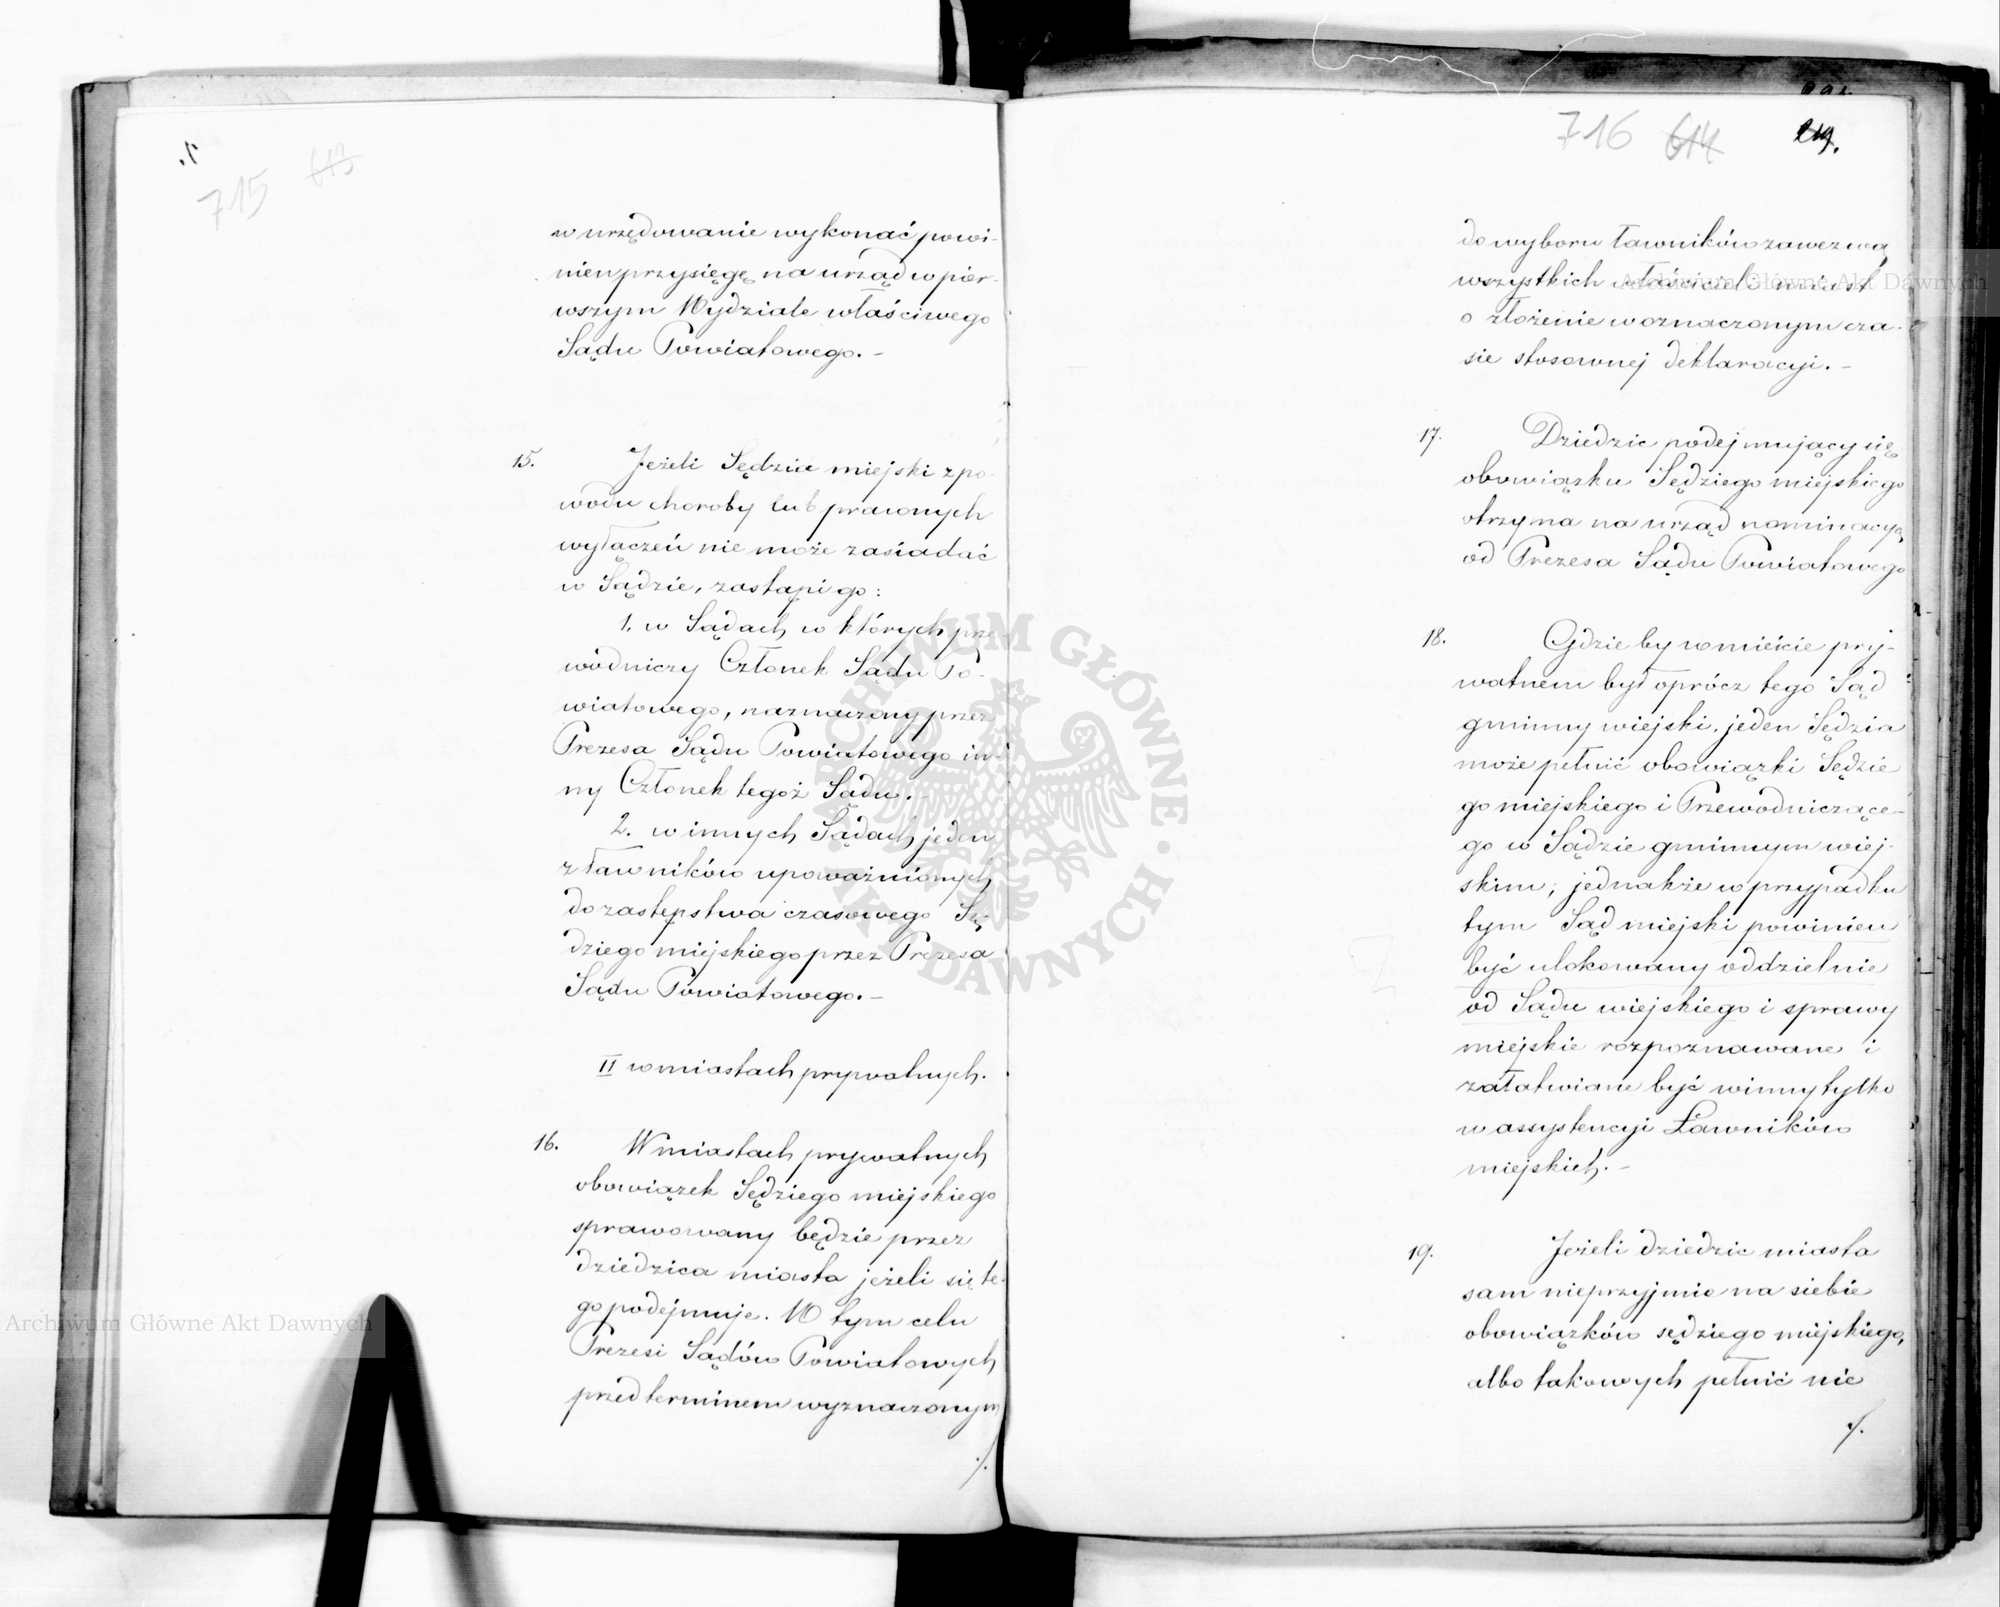 715 613
w urzędowanie wykonać powi-
nien przysięgę na urząd w pier-
wszym Wydziale właściwego
Sądu Powiatowego. –
15. Jeżeli Sędzia miejski z po-
wodu choroby lub prawnych
wyłączeń nie może zasiadać
w Sądzie, zastąpi go:
1. w Sądach w których prze-
wodniczy Członek Sądu Po-
wiatowego, naznaczony przez
Prezesa Sądu Powiatowego in-
ny Członek tegoż Sądu. –
2. w innych Sądach jeden
z ławników upoważnionych
do zastępstwa czasowego Sę-
dziego miejskiego przez Prezesa
Sądu Powiatowego. –
II w miastach prywatnych.
16. W miastach prywatnych
obowiązek Sędziego miejskiego
sprawowany będzie przez
dziedzica miasta jeżeli się te-
go podejmuje. W tym celu
Prezesi Sądów Powiatowych
przed terminem wyznaczonym
./.
716 614 219.
do wyboru ławników zawezwą
wszystkich właścicieli miast
o złożenie w oznaczonym cza-
sie stosownej deklaracyi. –
17. Dziedzic podejmujący się
obowiązku Sędziego miejskiego
otrzyma na urząd nominacyą
od Prezesa Sądu Powiatowego
18. Gdzieby w mieście pry-
watnem był oprócz tego Sąd
gminny wiejski, jeden Sędzia
może pełnić obowiązki Sędzie
go miejskiego i Przewodniczące-
go w Sądzie gminnym wiej-
skim; jednakże w przypadku
tym Sąd miejski powinien
być ulokowany oddzielnie
od Sądu wiejskiego i sprawy
miejskie rozpoznawane i
załatwiane być winny tylko
w assystencyi Ławników
miejskich. –
19. Jeżeli dziedzic miasta
sam nieprzyjmie na siebie
obowiązków sędziego miejskiego,
albo takowych pełnić nie
./.
Archiwum Główne Akt Dawnych
Archiwum Główne Akt Dawnych
ARCHIWUM GŁÓWNE • AKT DAWNYCH •